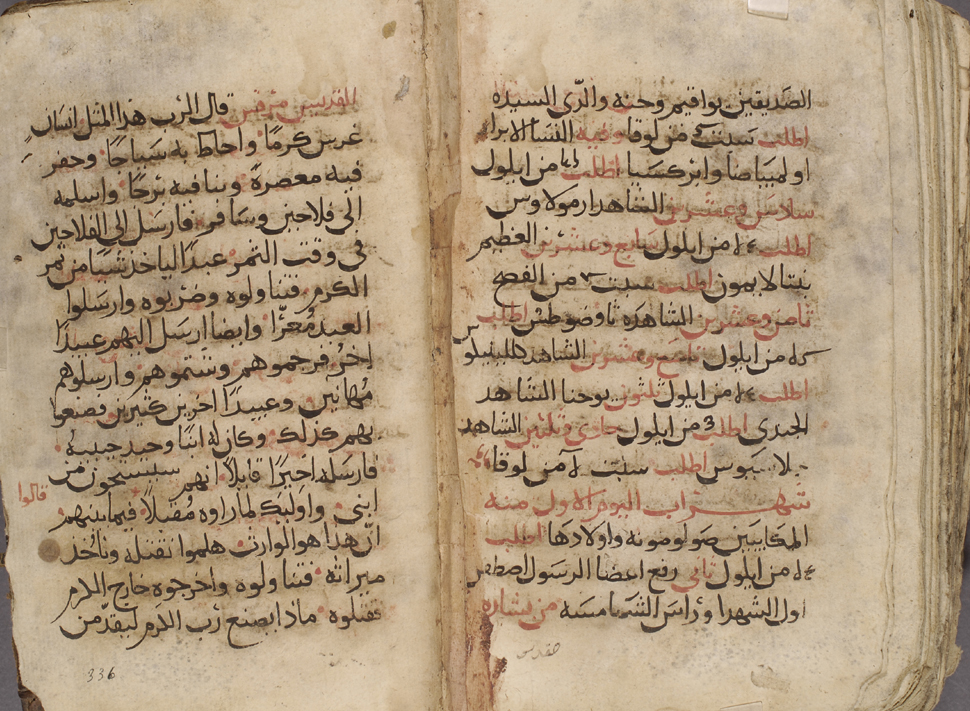 الصديقين يواقيم وحنه والدي السيده
اطلب سبت من لوقا وفيه النسا الابرار
اولمبياضا وابركسيا اطلب من ايلول
سادس وعشرين الشاهد ارمولاوس
اطلب من ايلول سابع وعشرين العظيم
بنتالايمون اطلب سبت ٣ من الفصح
ثامن وعشرين الشاهده ثاوضوطيس اطلب
من ايلول تاسع وعشرين الشاهد
اطلب من ايلول ثلثون يوحنا الشاهد
الجندي اطلب 3 من ايلول حادي وثلثين الشاهد
اطلب سبت من لوقا
شهر اب اليوم الاول منه
المكابيين صولومونه واولادها اطلب
من ايلول ثاني رفع اعضا الرسول اصطفن
اول الشهدا وراس الشمامسه من بشاره
مقدس
القديس مرقس قال الرب هذا المثل انسان
غرس كرمًا واحاط به سياجًا وحفر
فيه معصرةً وبنا فيه برجًا واسلمه
الى فلاحين وسافر فارسل الى الفلاحين
في وقت الثمر عبدًا لياخذ شيًا من ثمر
الكرم فتناولوه وضربوه وارسلوا
العبد مُعرًا وايضا ارسل اليهم عبيدًا
اخرُ فرجموهم وشتموهم وارسلوهم
مُهانين وعبيدًا اخرين كثيرين فصنعوا
بهم كذلك وكان له ابنًا وحيد حبيبه
فارسله اخيرًا قايلاً انهم سيستحون من
ابني واوليك لما راوه مُقبلاً فيما بينهم
قالوا
ان هذا هو الوارث هلموا نقتله وناخذ
ميراثه فتناولوه واخرجوه خارج الكرم
فقتلوه ماذا يصنع رب الكرم ليقدمن
336